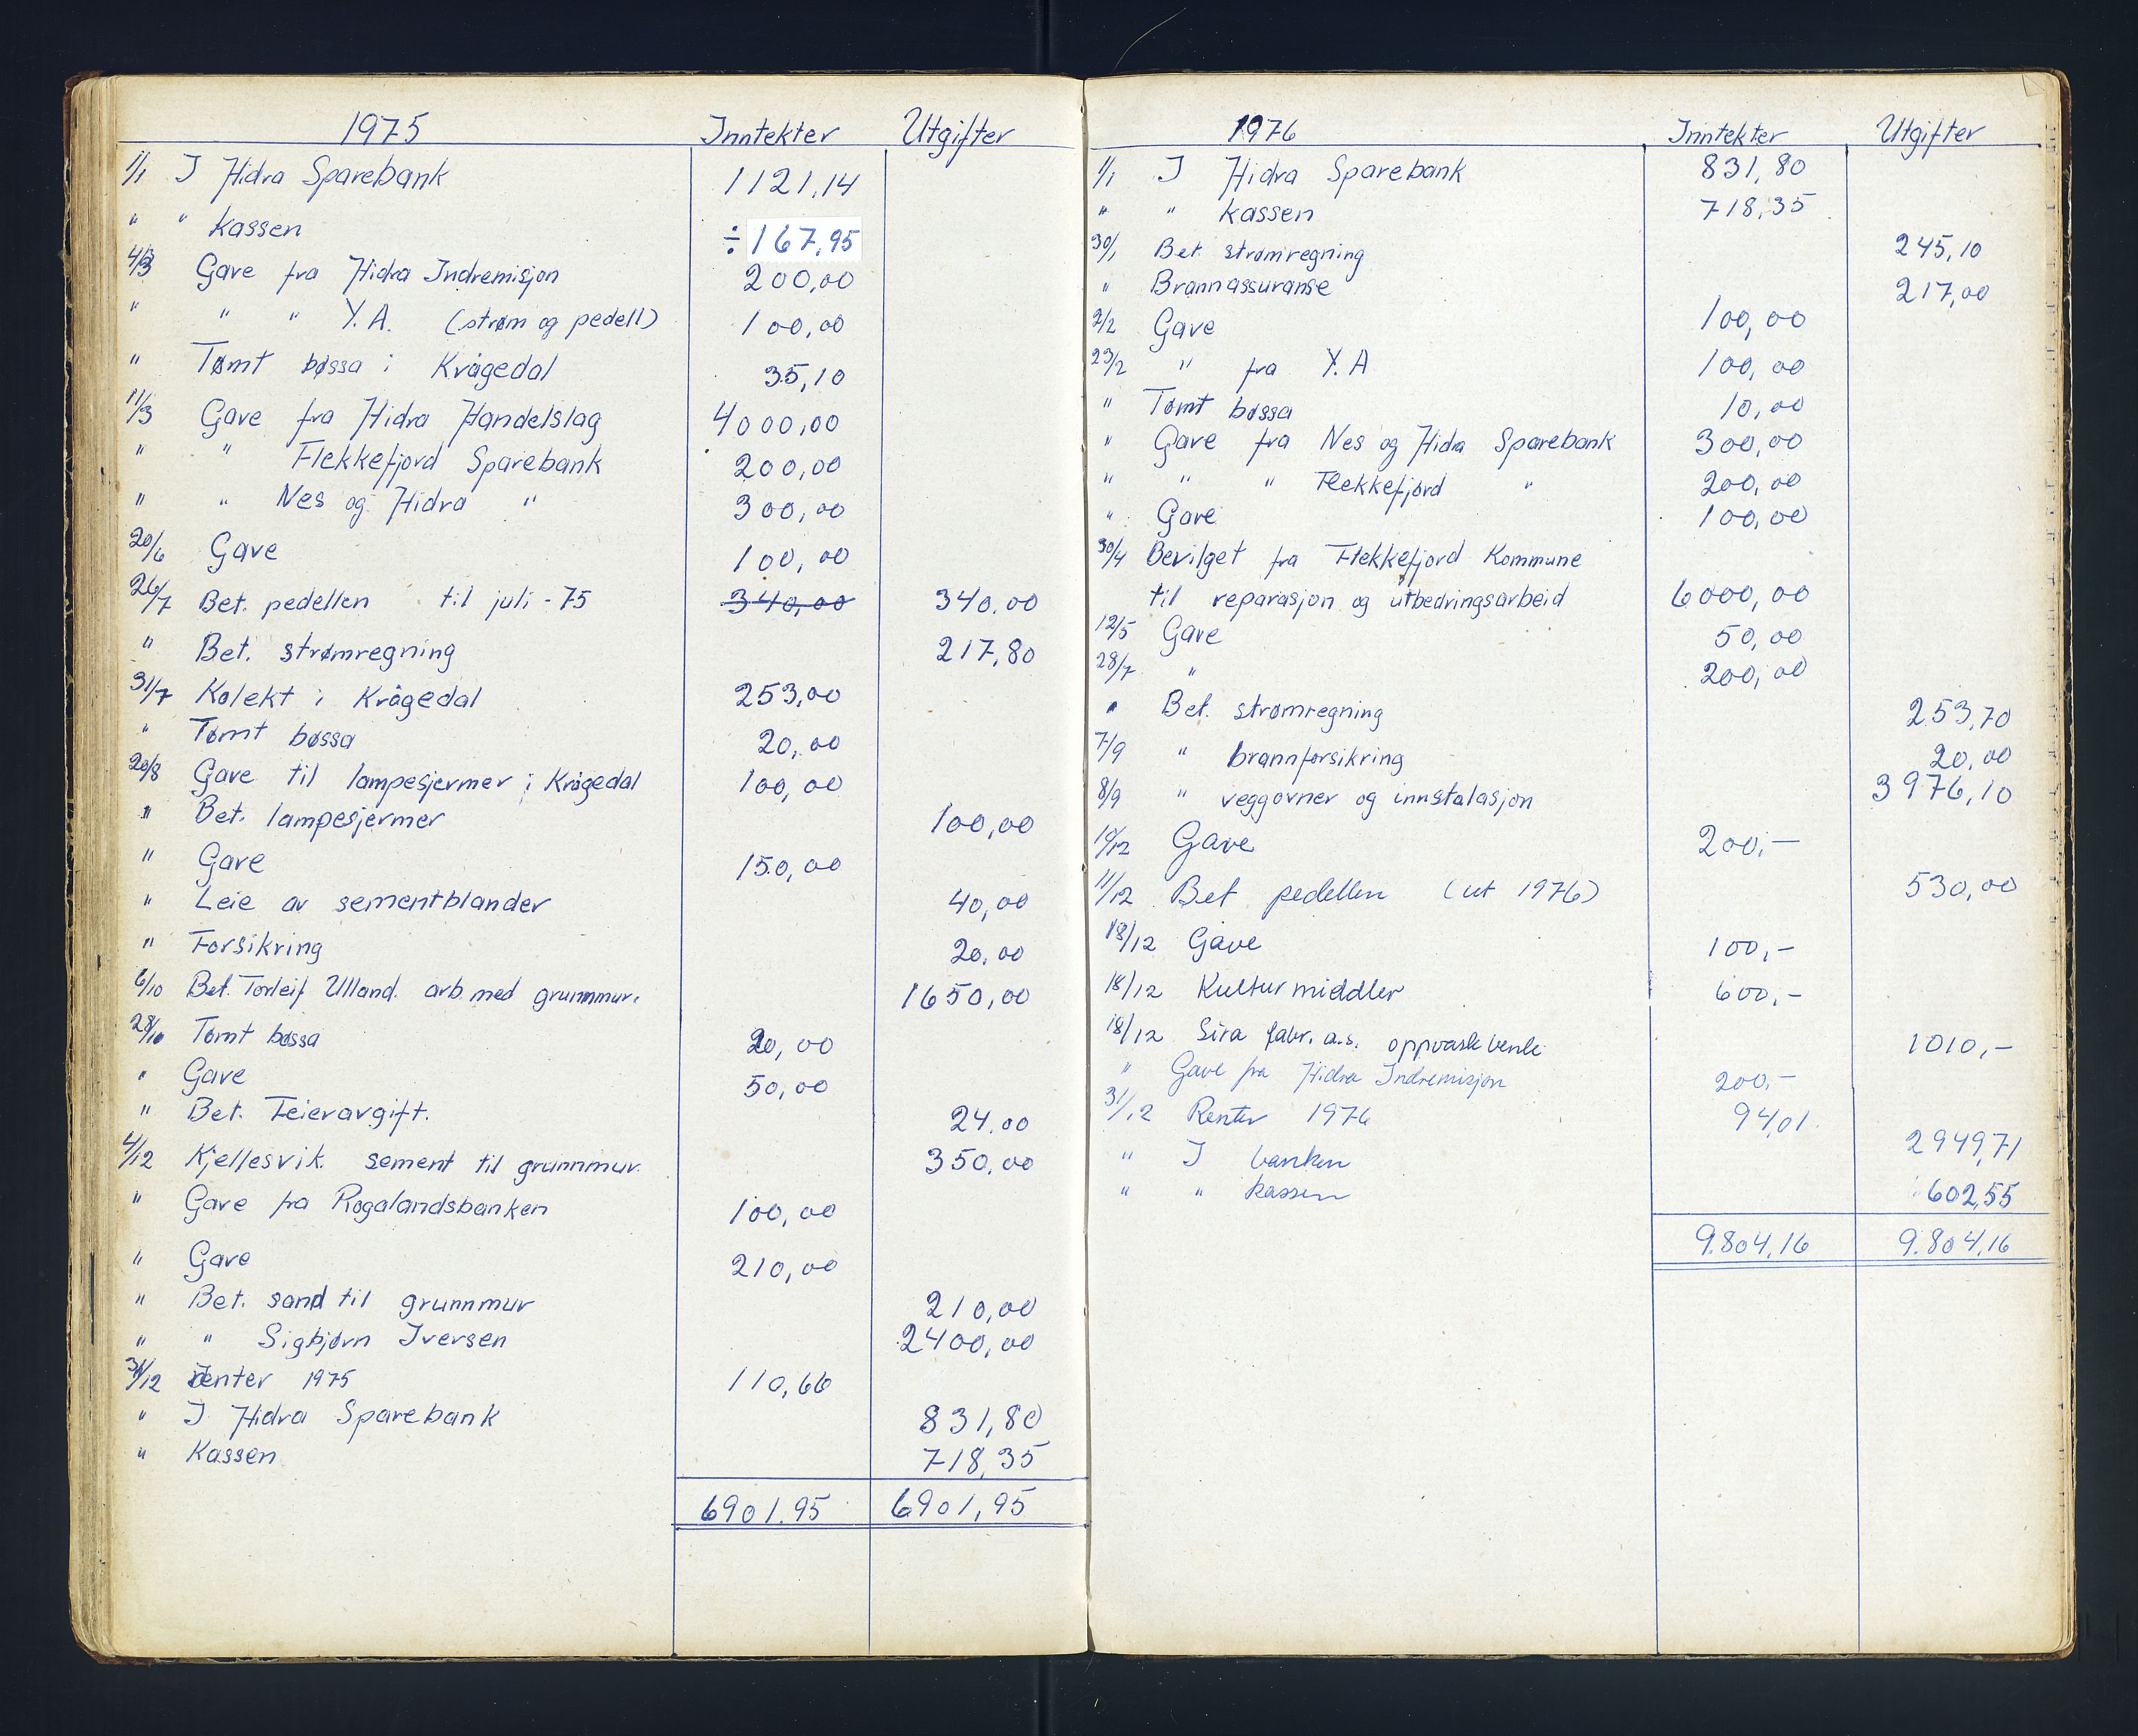 1975 Inntekter Utgifter
1/1 I Hidra Sparebank 1121,14
" " Kassen ÷ 167,95
4/3 Gave fra Hidra Indremisjon 200,00
" " " Y.A. (strøm og pedell) 100,00
" Tømt bøssa i Krågedal 35,10
11/3 Gave fra Hidra Handelslag 4000,00
" " Flekkefjord Sparebank 200,00
" " Nes og Hidra " 300,00
20/6 Gave 100,00
26/7 Bet. pedellen til juli - 75 340,00 340.00
" Bet. strømregning 217,80
31/7 Kolekt i Krågedal 253,00
" Tømt bøssa 20,00
20/8 Gave til lampesjermer i Krågedal 100,00
" Bet. lampesjermer 100,00
" Gave 150,00
" Leie av sementblander 40,00
" Forsikring 20,00
6/10 Bet. Torleif Ulland. arb. med grunnmur. 1650,00
28/10 Tømt bøssa 20,00
" Gave 50,00
" Bet. Feieravgift. 24.00
4/12 Kjellesvik. sement til grunnmur. 350,00
" Gave fra Rogalandsbanken 100,00
" Gave 210,00
" Bet. sand til grunnmur 210,00
" " Sigbjørn Iversen 2400,00
31/12 renter 1975 110,66
" I Hidra Sparebank 831,80
" Kassen 718,35
6901.95 6901,95
1976 Inntekter Utgifter
1/1 I Hidra Sparebank 831,80
" " kassen 718,35
30/1 Bet. strømregning 245,10
" Brannassuranse 217,00
2/2 Gave 100,00
23/2 " fra Y.A 100,00
" Tømt bøssa 10,00
" Gave fra Nes og Hidra Sparebank 300,00
" " " Flekkefjord " 200,00
" Gave 100,00
30/4 Bevilget fra Flekkefjord Kommune
til reparasjon og utbedringsarbeid 6000,00
12/5 Gave 50,00
28/7 " 200,00
" Bet. strømregning 253,70
7/9 " brannforsikring 20,00
8/9 " veggovner og innstalasjon 3976,10
10/12 Gave 200,-
11/12 Bet pedellen (ut 1976) 530,00
18/12 Gave 100,-
18/12 Kulturmiddler 600,-
18/12 Sira fabr. a.s. oppvaskbenk 1010,-
" Gave fra Hidra Indremisjon 200,-
31/12 Renter 1976 94,01
" I banken 2949,71
" " kassen 602,55
9.804,16 9.804,16